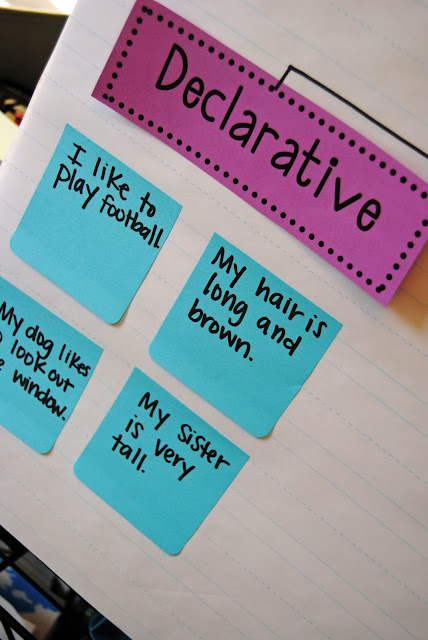 Declarative
I like to
play football.
My hair is
long and
brown.
My dog likes
look out
window.
My sister
is very
tall.